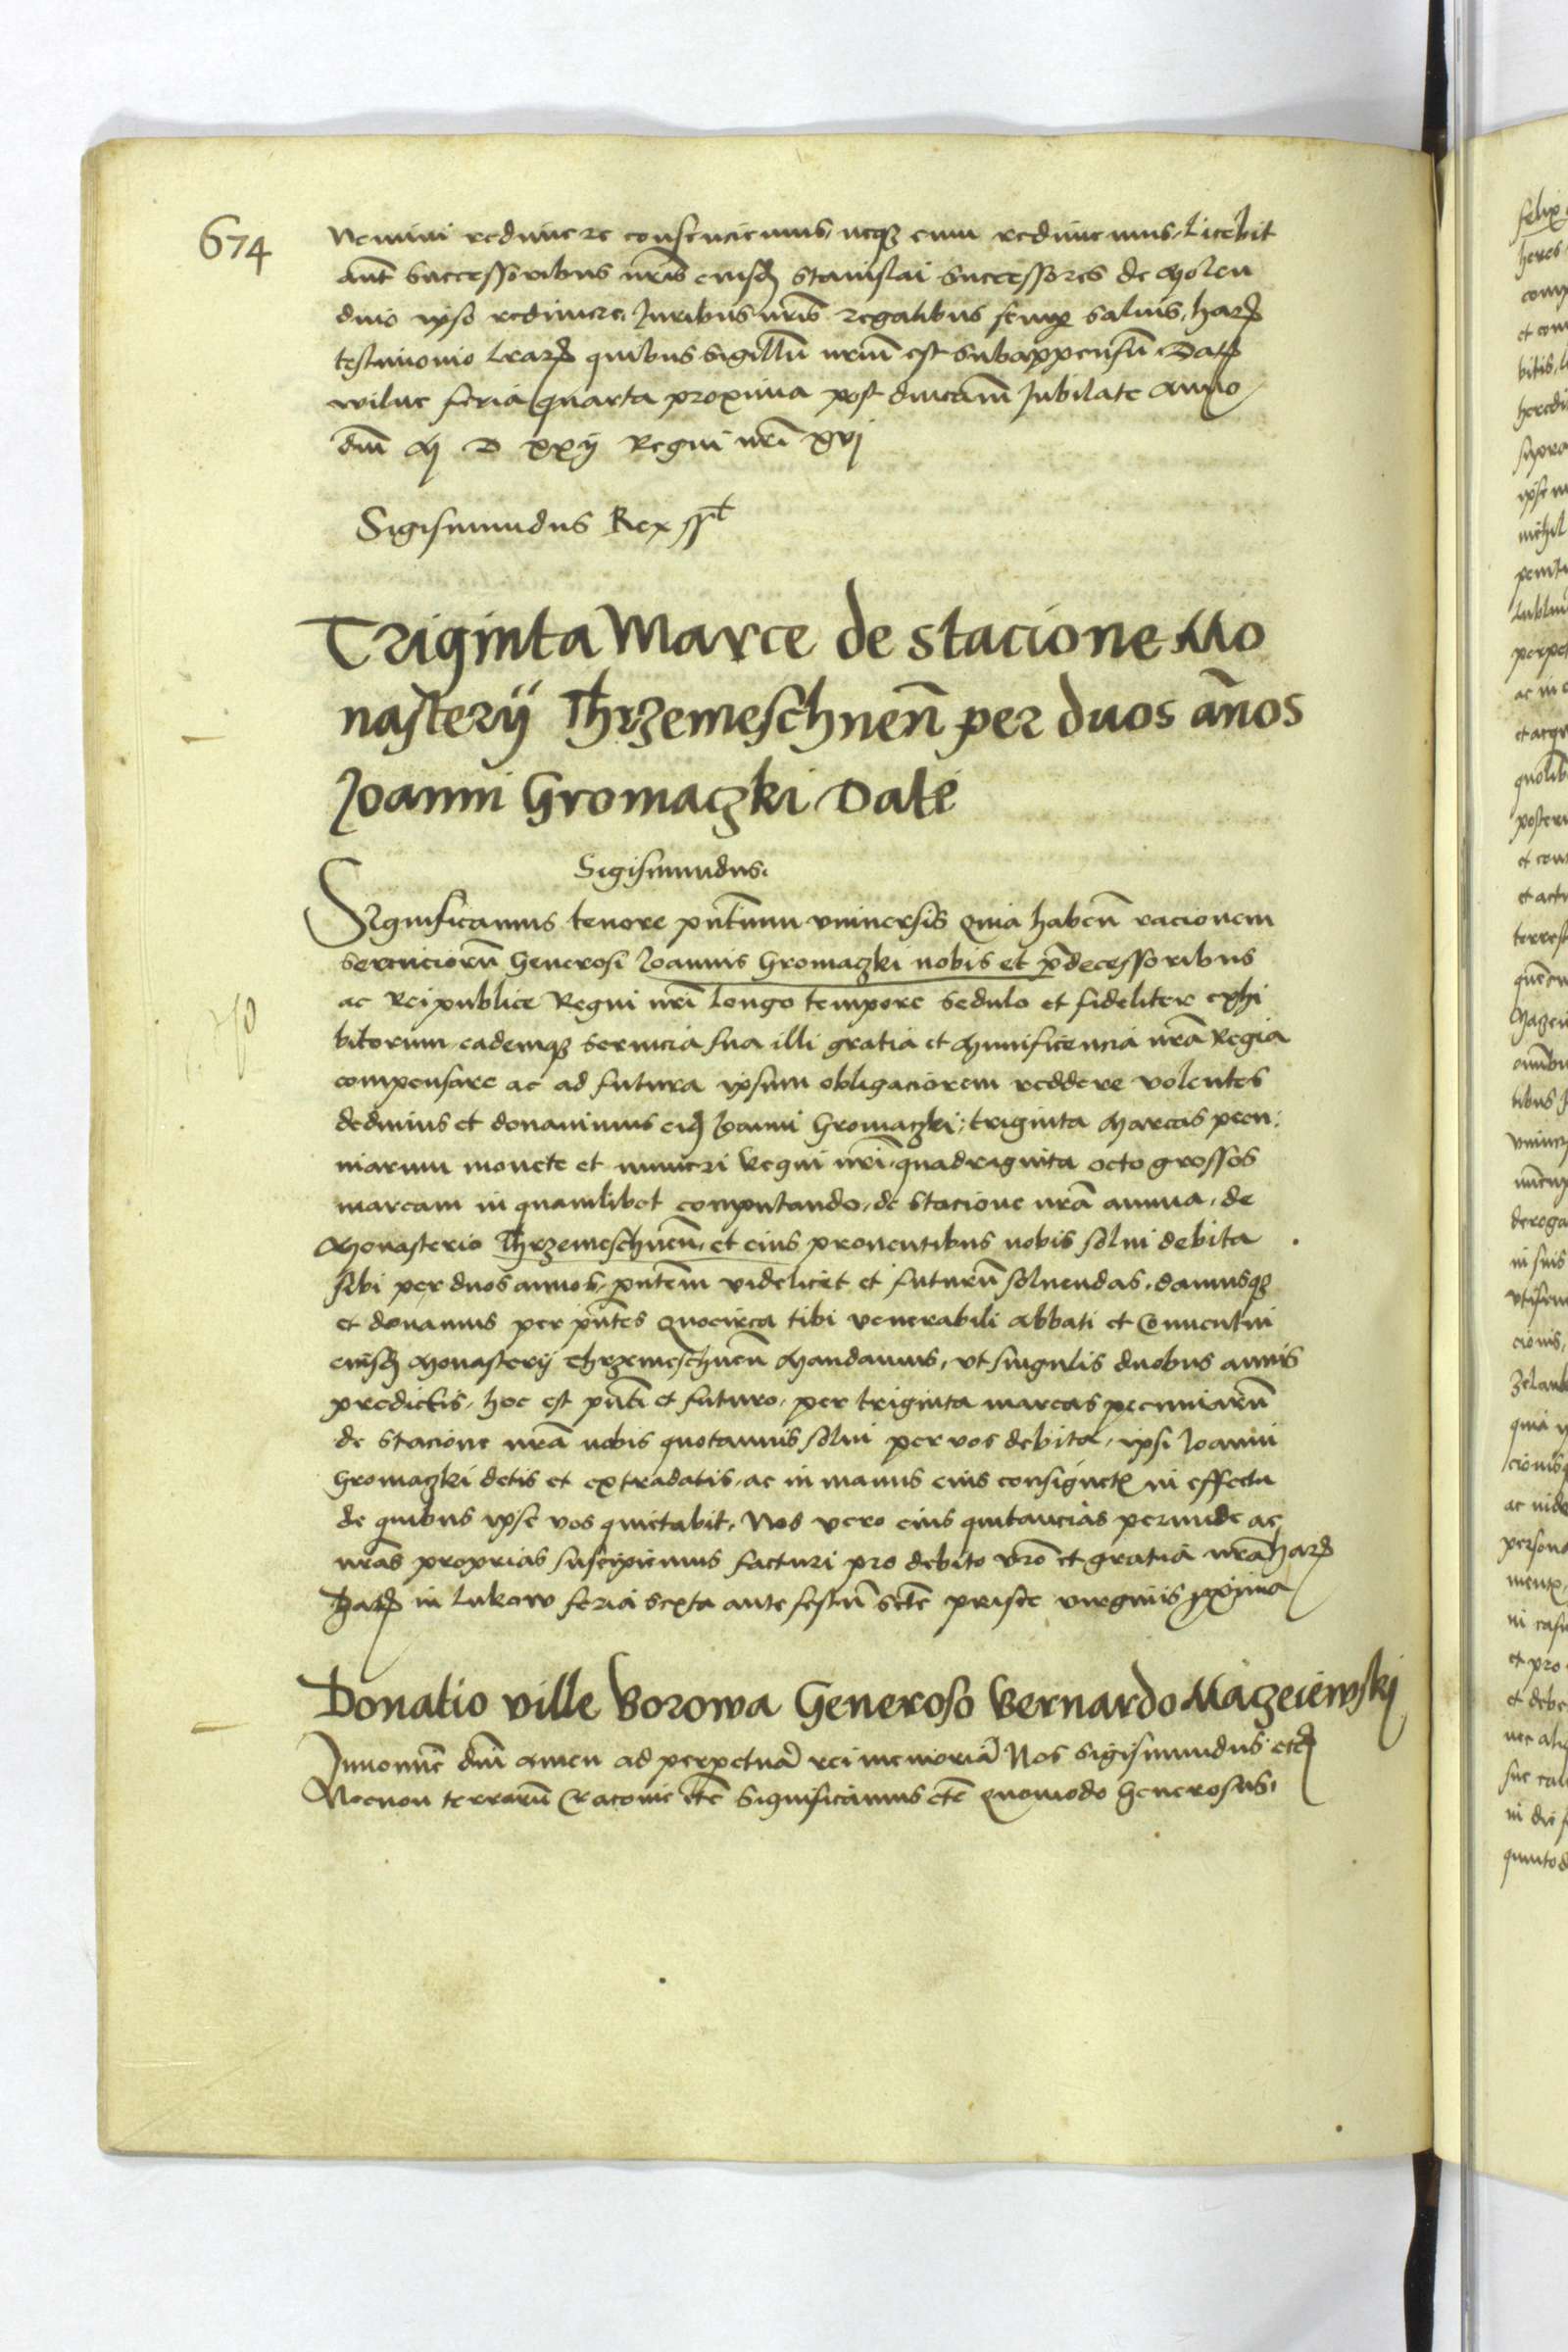 674
Nemini redimere consenciemus, neqz eum redimemus, Licebit
aut̄ successoribus nr̄is eiusd̄ Stanislai successores de Molen
dino ipso redimere, Juribus nr̄is regalibus semp̱ saluis, har̄
testimonio Lrar̄ quibus Sigillū nrūm est subappensū Dat̄
wilne feria quarta proxima post dnicam̄ Jubilate Anno
dnī M D xxij Regni nrī xvj
Sigismundus Rex sst
Triginta Marce de stacione Mo
nasterij Thrzemeschnen̄ per duos an̄os
Joanni Gromaczki Date
Sigismundus.
Significamus tenore pn̄tium vniuersis Quia haben̄ racionem
seruiciorū Generosi Joannis Gromaczki nobis et p̄decessoribus
ac Reipublice Regni nrī longo tempore sedulo et fideliter exhi
bitorum eademqz seruicia sua illi gratia et Munificencia nrā Regia
compensare ac ad futura ipsum obligaciorem reddere volentes
dedimus et donauimus eid̄ Joanni Gromaczki, triginta Marcas pecu
niarum monete et numeri Regni nrī, quadraginta octo grossos
marcam in quamlibet computando, de stacione nrā annua, de
Monasterio Thrzemeschnen̄, et eius prouentibus nobis solui debita
sibi per duos annos, pn̄tem videlicet et futurū soluendas, damusqz
et donamus per pn̄tes Quocirca tibi venerabili Abbati et Conuentui
eiusd̄ Monasterij Thrzemeschnen̄ Mandamus, vt singulis duobus annis
predictis, hoc est pn̄ti et futuro, per triginta marcas pecuniarū
de stacione nrā nobis quotannis solui per vos debita, ipsi Joanni
Gromaczki detis et extradatis, ac in manus eius consignetis in effectu
de quibus ipse vos quietabit, Nos vero eius quitancias perinde ac
nrās proprias suscipiemus facturi pro debito vrō et gratia nrā har̄
Dat̄ in Lukow feria sexta ante festū sctē prisce virginis pxima
Donatio ville Borowa Generoso Bernardo Maczeiewskj
Innomīe dnī amen ad perpetuā rei memoriā Nos Sigismundus etc̄
Necnon terrarū Cracouie etc̄ Significamus etc̄ Quomodo Generosus.